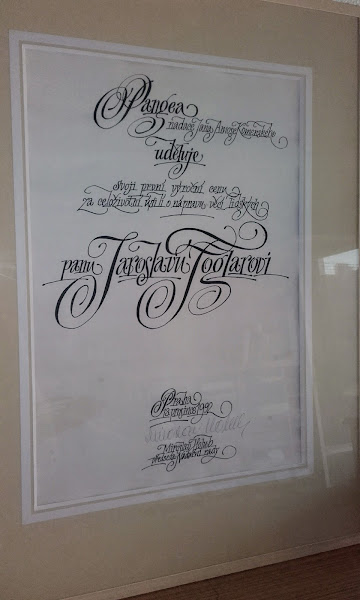 Pangea
nadace Jana Amose Komenského
uděluje
svoji první výroční cenu
za celoživotní úsilí o nápravu věcí lidských
panu Jaroslavu Foglarovi
Praha
prosince 1992
Miroslav
předseda Nadační rady